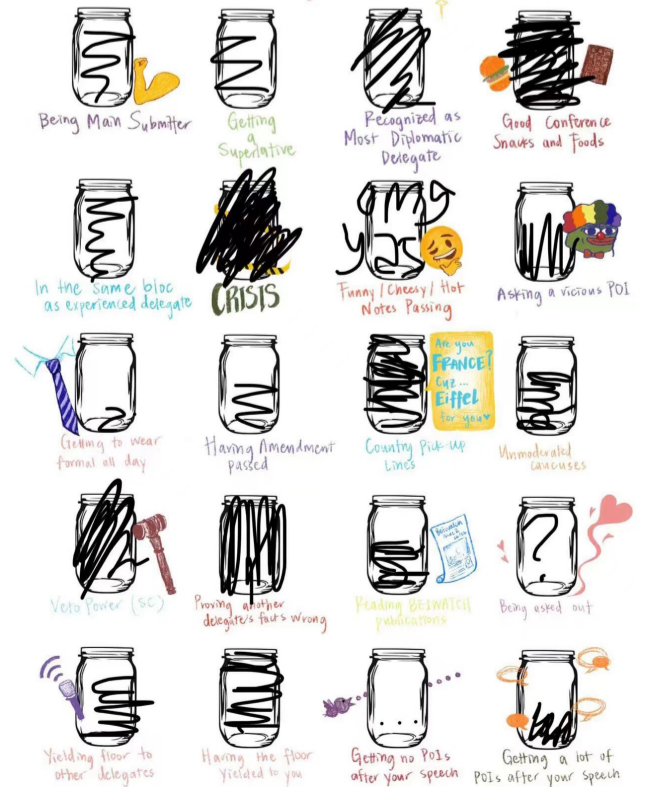 Being Main Submitter
Getting
a
Superlative
Recognized as
Most Diplomatic
Delegate
Good Conference
Snacks and Foods
In the same bloc
as experienced delegate
CRISIS
omg
yas
Funny / Cheesy / Hot
Notes Passing
Asking a vicious POI
Getting to wear
formal all day
Having Amendment
passed
Are you
FRANCE?
Cuz ...
Eiffel
for you
Country Pick up
Lines
Unmoderated
caucuses
Veto Power (SC)
Proving another
delegate's facts wrong
Reading BEIWATCH
publications
?
Being asked out
Yielding floor to
other delegates
Having the floor
yielded to you
....
Getting no POIs
after your speech
Getting a lot of
POIs after your speech